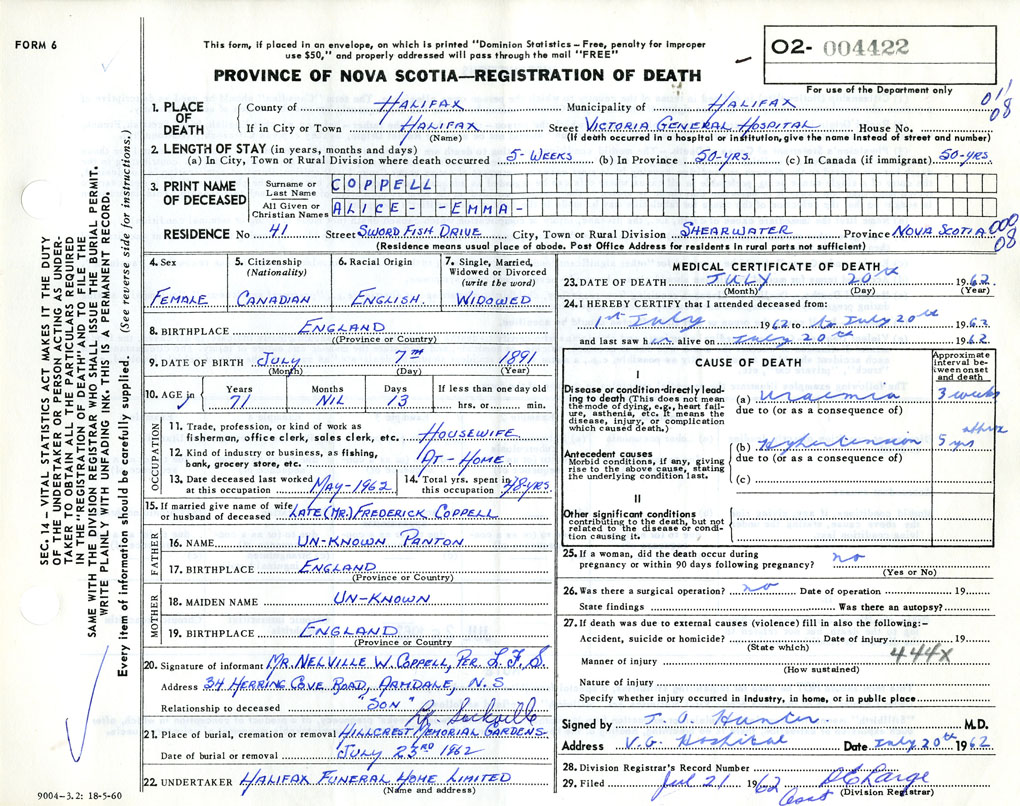 FORM 6
This form, if placed in an envelope, on which is printed "Dominion Statistics – Free, penalty for improper
use $50," and properly addressed will pass through the mail "FREE"
PROVINCE OF NOVA SCOTIA—REGISTRATION OF DEATH
O2- 004422
For use of the Department only
SEC. 14 – VITAL STATISTICS ACT MAKES IT THE DUTY
OF THE UNDERTAKER OR PERSON ACTING AS UNDER-
TAKER TO OBTAIN ALL THE PARTICULARS REQUIRED
IN THE "REGISTRATION OF DEATH" AND TO FILE THE
SAME WITH THE DIVISION REGISTRAR WHO SHALL ISSUE THE BURIAL PERMIT.
WRITE PLAINLY WITH UNFADING INK. THIS IS A PERMANENT RECORD.
Every item of information should be carefully supplied. (See reverse side for instructions.)
1. PLACE OF DEATH
County of HALIFAX Municipality of HALIFAX 01/08
If in City or Town HALIFAX Street VICTORIA GENERAL HOSPITAL House No.
(Name) (If death occurred in a hospital or institution, give the name instead of street and number)
2. LENGTH OF STAY (in years, months and days)
(a) In City, Town or Rural Division where death occurred 5-WEEKS (b) In Province 50-YRS. (c) In Canada (if immigrant) 50-YRS.
3. PRINT NAME OF DECEASED
Surname or Last Name COPPELL
All Given or Christian Names ALICE--EMMA-
RESIDENCE No 41 Street SWORD FISH DRIVE City, Town or Rural Division SHEARWATER Province NOVA SCOTIA 000 08
(Residence means usual place of abode. Post Office Address for residents in rural parts not sufficient)
4. Sex FEMALE
5. Citizenship (Nationality) CANADIAN
6. Racial Origin ENGLISH
7. Single, Married, Widowed or Divorced (write the word) WIDOWED
8. BIRTHPLACE ENGLAND
(Province or Country)
9. DATE OF BIRTH JULY 7TH 1891
(Month) (Day) (Year)
10. AGE in Years 71 Months NIL Days 13 If less than one day old hrs. or min.
OCCUPATION
11. Trade, profession, or kind of work as
fisherman, office clerk, sales clerk, etc. HOUSEWIFE
12. Kind of industry or business, as fishing,
bank, grocery store, etc. AT-HOME
13. Date deceased last worked at this occupation MAY-1962 14. Total yrs. spent in this occupation 48-YRS.
15. If married give name of wife
or husband of deceased LATE (MR.) FREDERICK COPPELL
FATHER
16. NAME UN-KNOWN PANTON
17. BIRTHPLACE ENGLAND
(Province or Country)
MOTHER
18. MAIDEN NAME UN-KNOWN
19. BIRTHPLACE ENGLAND
(Province or Country
20. Signature of informant MR. NELVILLE W. COPPELL, PER. L.F.S.
Address 34 HERRING COVE ROAD, ARMDALE, N.S.
Relationship to deceased "SON"
Lr. Sackville
21. Place of burial, cremation or removal HILLCREST MEMORIAL GARDENS
Date of burial or removal JULY 23RD 1962
22. UNDERTAKER HALIFAX FUNERAL HOME LIMITED
(Name and address)
9004-3.2: 18-5-60
MEDICAL CERTIFICATE OF DEATH
23. DATE OF DEATH JULY 20th 1962
(Month) (Day) (Year)
24. I HEREBY CERTIFY that I attended deceased from:
1st July 1962 to July 20th 1962
and last saw her alive on July 20th 1962
CAUSE OF DEATH
Approximate interval between onset and death
I
Disease or condition directly lead-
ing to death (This does not mean
the mode of dying, e.g., heart fail-
ure, asthenia, etc. It means the
disease, injury, or complication
which caused death.)
(a) Uraemia 3 weeks
due to (or as a consequence of)
(b) Hypertension 5 yrs approx
due to (or as a consequence of)
(c)
Antecedent causes
Morbid conditions, if any, giving
rise to the above cause, stating
the underlying condition last.
II
Other significant conditions
contributing to the death, but not
related to the disease or condi-
tion causing it.
25. If a woman, did the death occur during
pregnancy or within 90 days following pregnancy? no
(Yes or No)
26. Was there a surgical operation? no Date of operation 19
State findings Was there an autopsy?
27. If death was due to external causes (violence) fill in also the following:-
Accident, suicide or homicide? Date of injury 19
(State which) 444X
Manner of injury
(How sustained)
Nature of injury
Specify whether injury occurred in Industry, in home, or in public place
Signed by J. O. Hunter M.D.
Address V.G. Hospital Date July 20th 1962
28. Division Registrar's Record Number
29. Filed Jul 21 1962
(Division Registrar)